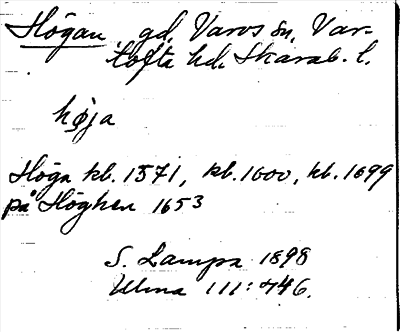 Högan, gd, Varvs sn, Var-
tofta hd, Skarab. l.
høja
Höga kb. 1571, kb. 1600, kb. 1699
på Höghen 1653
S. Lampa 1898
Ulma 111:746.